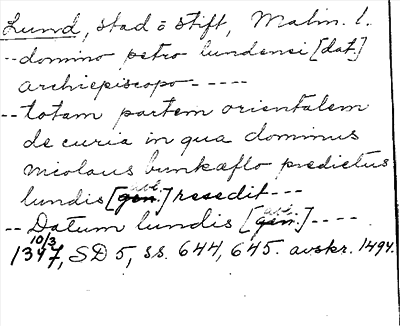 Lund, stad o stift, Malm. l.
-- domino petro lundensi [dat.]
archiepiscopo -----
-- totam partem orientalem
de curia in qua dominus
nicolaus bunkaflo predictus
abl.
lundis [gen.] resedit ---
abl.
-- Datum lundis [gen.] ----
10/3
1347, SD 5, ss. 644, 645. avskr. 1494.